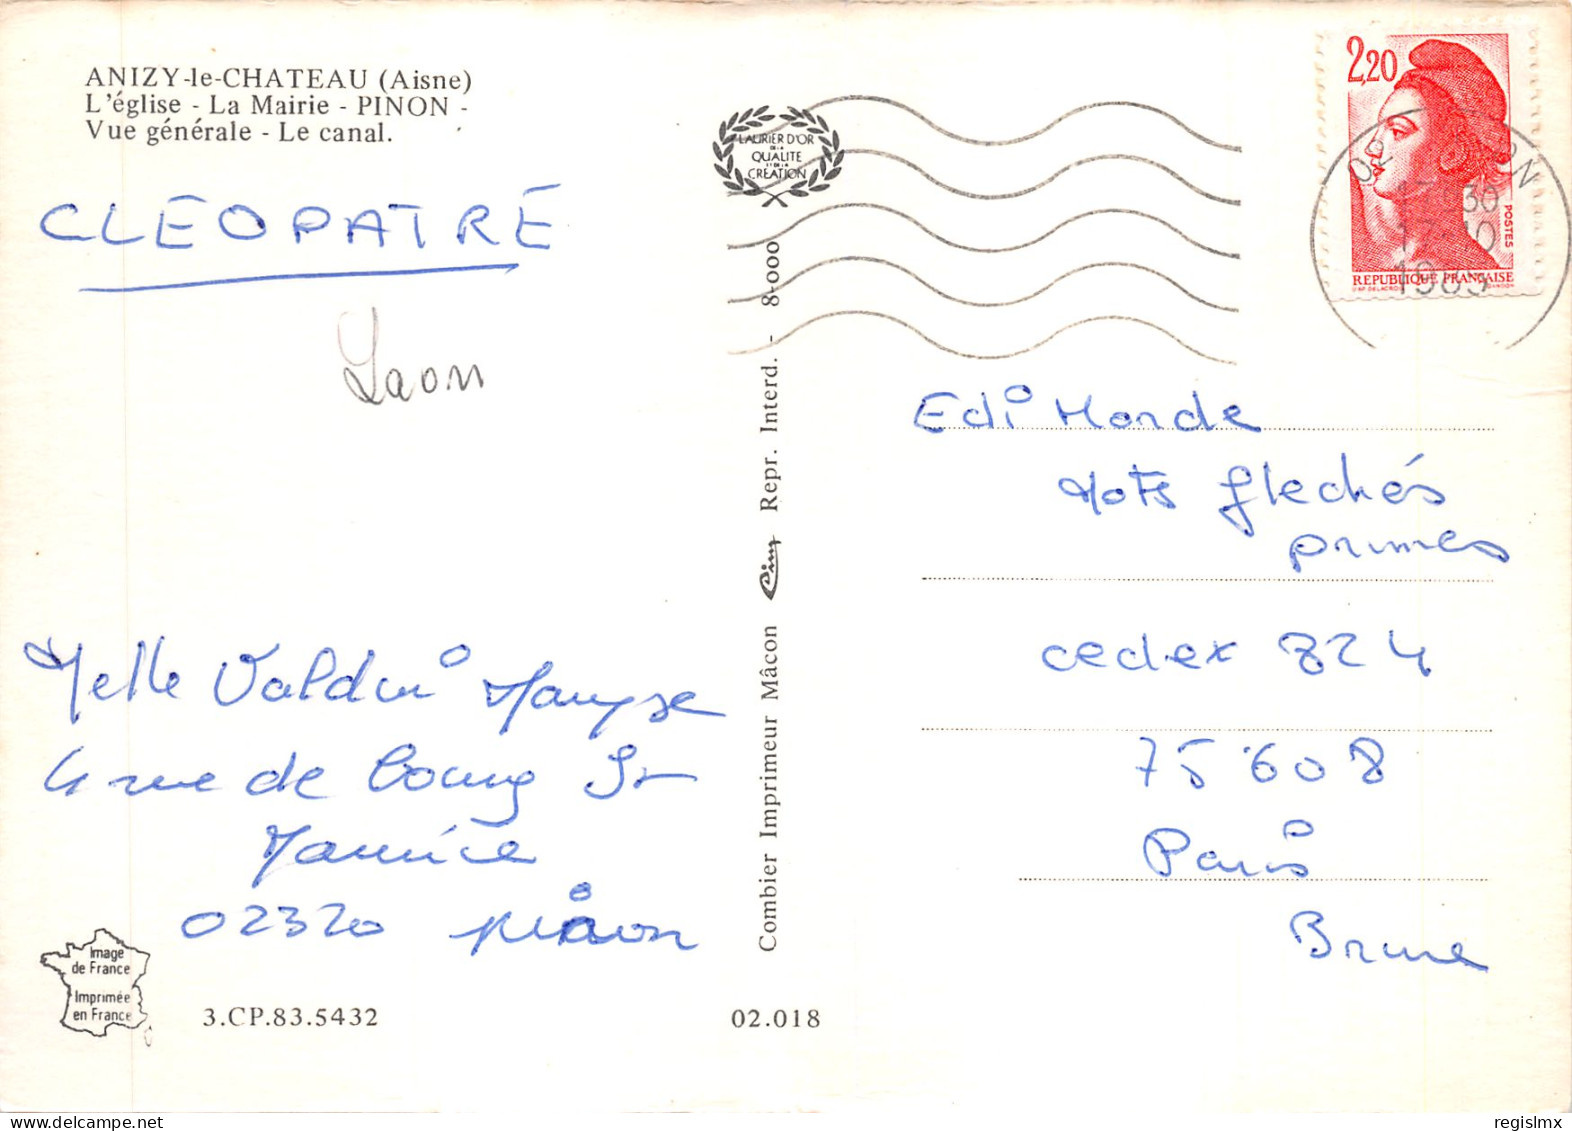 ANIZY-le-CHATEAU (Aisne)
L'église - La Mairie - PINON -
Vue générale - Le canal.
CLEOPATRE
Laon
Melle Valdui Maryse
4 rue de bourg St
Maurice
02320 pinon
Image
de France
Imprimée
en France
3.CP.83.5432
02.018
LAURIER D'OR
DE LA
QUALITE
ET DE LA
CREATION
Combier Imprimeur Mâcon Cim Repr. Interd. - 8-000
2,20
POSTES
REPUBLIQUE FRANÇAISE
02 ON
30
Edi Monde
Mots flechés
primes
cedex 824
75608
Paris
Brune
regislmx